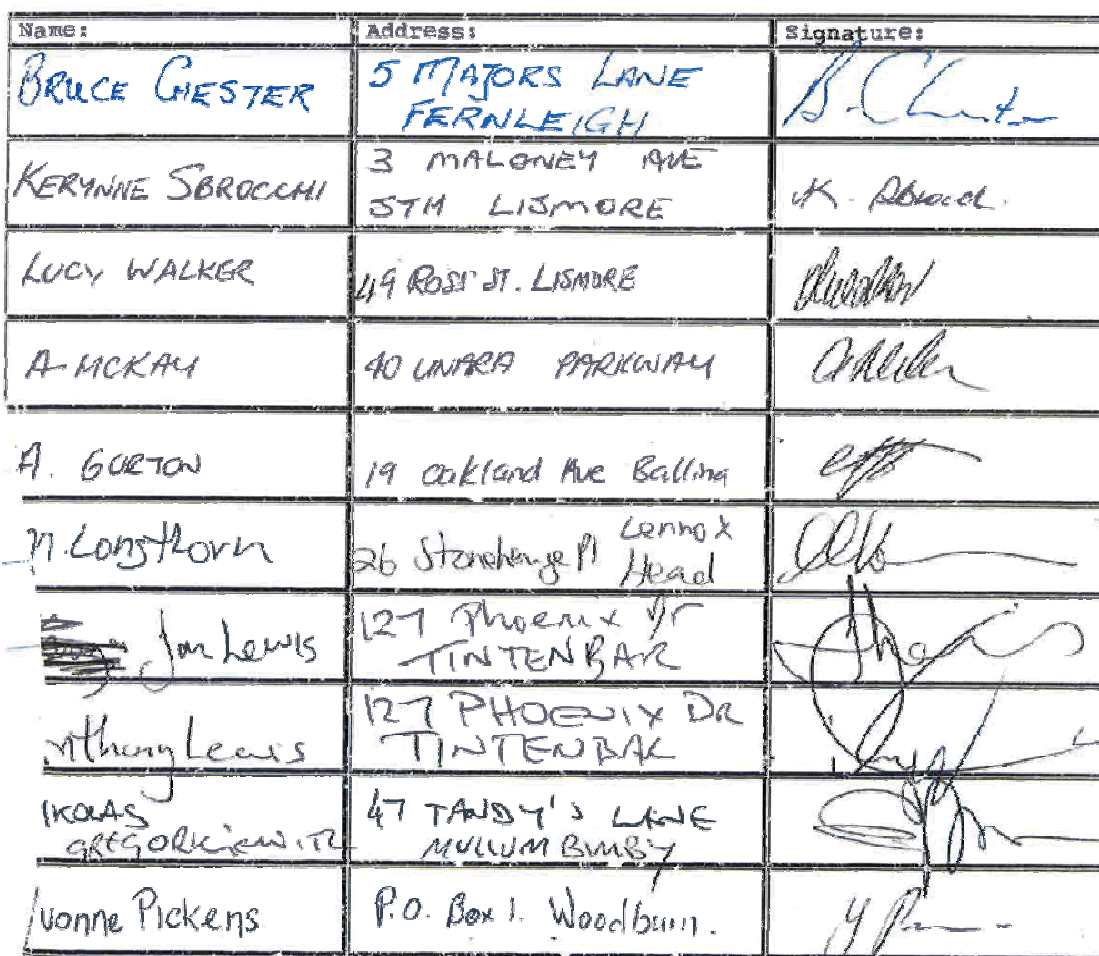 Name: Address: Signature:
BRUCE CHESTER 5 MAJORS LANE B. Chester
FERNLEIGH
KERYNNE SBROCCHI 3 MALONEY AVE K. Sbrocchi
STH LISMORE
LUCY WALKER 49 ROSS ST. LISMORE
A McKAY 40 UNARA PARKWAY
A. GORTON 19 Oakland Ave Ballina
N. Longthorn 26 Stonehenge Pl Lennox
Head
Jan Lewis 127 Phoenix Dr
TINTENBAR
nthony Lewis 127 PHOENIX DR
TINTENBAR
IKOLAS 47 TANDY'S LANE
GREGORKIEWITZ MULLUMBIMBY
Yvonne Pickens P.O. Box 1. Woodburn.